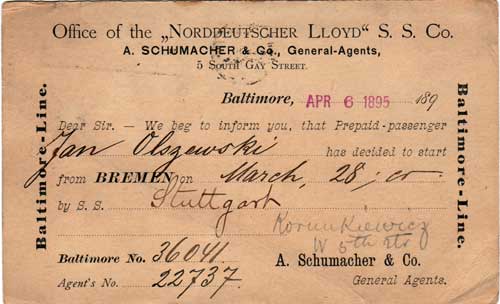 Office of the „Norddeutscher Lloyd“ S. S. Co.
A. SCHUMACHER & Co., General-Agents,
5 South Gay Street.
Baltimore, APR 6 1895 189
Dear Sir. — We beg to inform you, that Prepaid-passenger
Jan Olszewski has decided to start
from BREMEN on March, 28
by S. S. Stuttgart
Korunkiewicz
W 5th Str
Baltimore No. 36041
A. Schumacher & Co.
Agent's No. 22737.
General Agents.
Baltimore-Line.
Baltimore-Line.